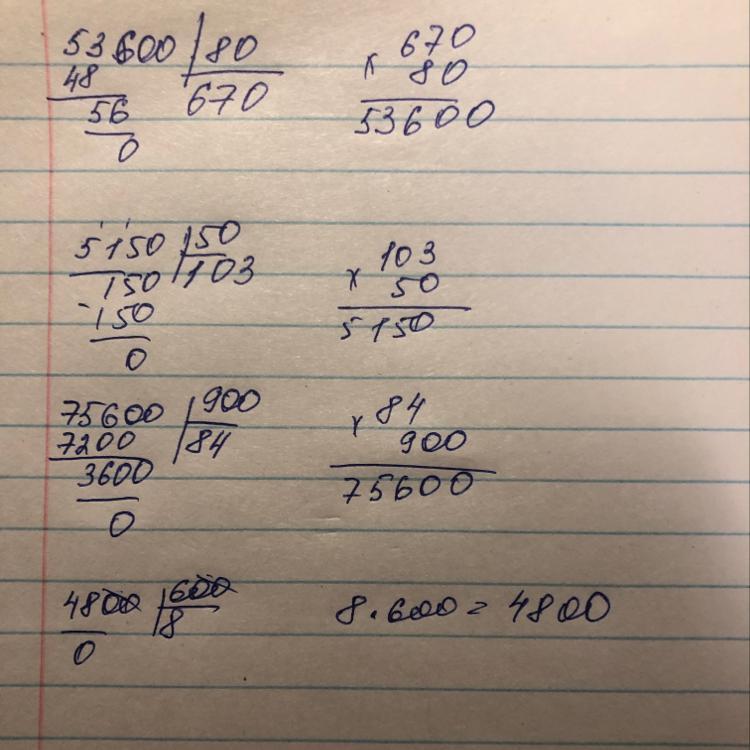 53600 80 670
48 670 × 80
56 53600
0
5150 50 103
150 103 × 50
-150 5150
0
75600 900 × 84
7200 84 900
3600 75600
0
4800 600 8 · 600 = 4800
0 8